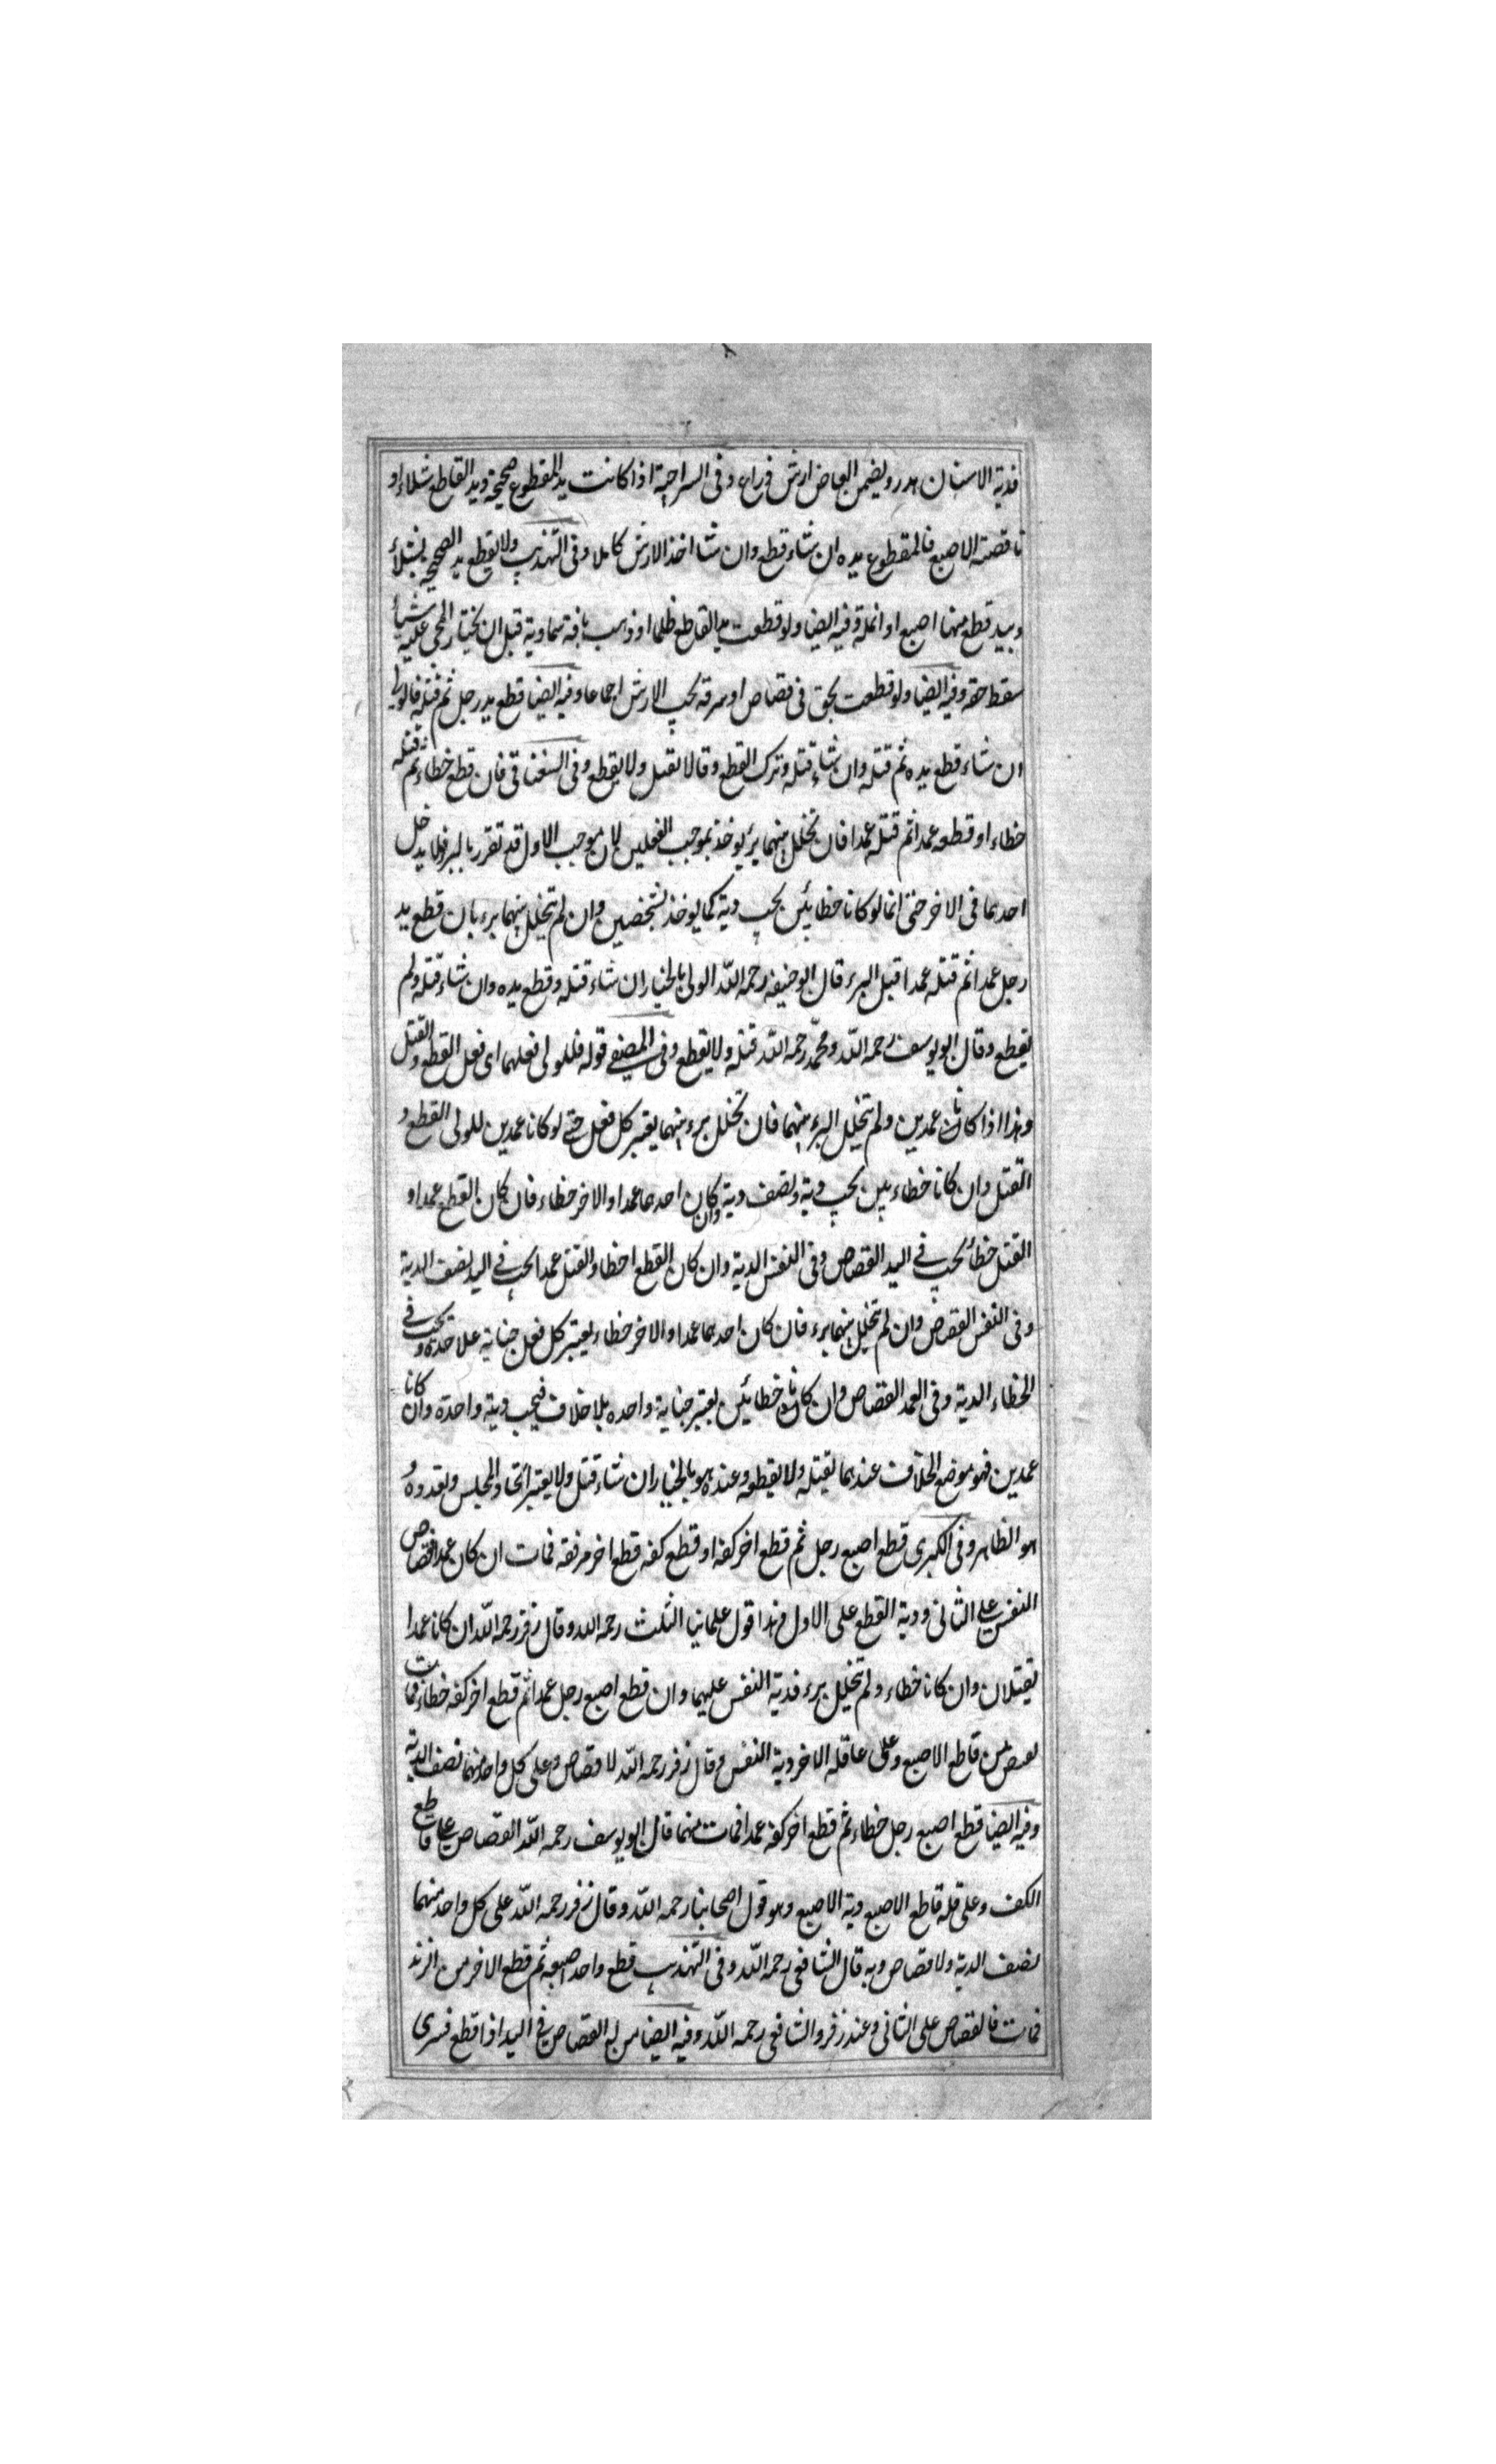 فدية الاسنان هدر ويضمن العاض ارش ذراع وفى السراجية اذا كانت يد المقطوع صحيحة ويد القاطع شلاء او
ناقصة الاصبع فالمقطوع يده ان شاء قطع وان شا اخذ الارش كاملا وفى التهذيب ولا يقطع يد الصحيحة بشلاء
وبيد قطع منها اصبع او انملة وفيه ايضا ولو قطعت يد القاطع ظلما او ذهب بافة سماوية قبل ان يختار المجنى عليه شيأ
سقط حقه وفيه ايضا ولو قطعت بحق فى قصاص او سرقة يجب الارش اجماعا وفيه ايضا قطع يد رجل ثم قتله فالولى
ان شاء قطع يده ثم قتله وان شاء قتله وترك القطع وقالا يقتل ولا يقطع وفى السغناقى فان قطع خطاء ثم قتله
خطاء او قطعه عمدا ثم قتله عمدا فان تخلل بينهما برء يوخذ بموجب الفعلين لان موجب الاول قد تقرر بالبرء فلا يدخل
احدهما فى الاخر حتى انما لو كانا خطائين يجب دية كما يوخذ لشخصين وان لم يتخلل بينهما برء بان قطع يد
رجل عمدا ثم قتله عمدا قبل البرء قال ابو حنيفه رحمه الله الولى بالخيار ان شاء قتله وقطع يده وان شاء قتله ولم
يقطع وقال ابو يوسف رحمه الله ومحمد رحمه الله قتله ولا يقطع وفى المصفى قوله فللولى فعلهما اى فعل القطع والقتل
وهذا اذا كانا عمدين ولم يتخلل البرء بينهما فان تخلل برء بينهما يعتبر كل فعل حتى لو كانا عمدين للولى القطع و
القتل وان كانا خطاءيين يجب دية ونصف دية وان كان احدهما عمدا والاخر خطاء فان كان القطع عمدا و
القتل خطأ يجب فى اليد القصاص وفى النفس الدية وان كان القطع خطاء والقتل عمدا يجب فى اليد نصف الدية
وفى النفس القصاص وان لم يتخلل بينهما برء فان كان احدهما عمدا والاخر خطاء يعتبر كل فعل جناية علاحدة ويجب فى
الخطاء الدية وفى العمد القصاص وان كانا خطائين يعتبر جناية واحده بلا خلاف فيجب دية واحدة وان كانا
عمدين فهو موضع الخلاف عندهما يقتله ولا يقطعه وعنده هو بالخيار ان شاء قتل ولا يعتبر اتحاد المجلس وتعدده و
هو الظاهر وفى الكبرى قطع اصبع رجل ثم قطع اخر كفه او قطع كفه قطع اخر مرفقه فمات ان كان عمدا فقصاص
النفس على الثانى ودية القطع على الاول هذا قول علمائنا الثلث رحمه الله وقال زفر رحمه الله ان كانا عمدا
يقتلان وان كانا خطاء ولم يتخلل برء فدية النفس عليهما وان قطع اصبع رجل عمدا ثم قطع اخر كفه خطاء فمات
يقتص من قاطع الاصبع وعلى عاقلة الاخر دية النفس وقال زفر رحمه الله لا قصاص وعلى كل واحد منهما نصف الدية
وفيه ايضا قطع اصبع رجل خطاء ثم قطع اخر كفه عمدا فمات منهما قال ابو يوسف رحمه الله القصاص على قاطع
الكف وعلى قلة قاطع الاصبع دية الاصبع وهو قول اصحابنا رحمه الله وقال زفر رحمه الله على كل واحد منهما
نصف الدية ولا قصاص وبه قال الشافعى رحمه الله وفى التهذيب قطع واحد اصبعه ثم قطع الاخر من الزند
فمات فالقصاص على الثانى وعند زفر والشافعى رحمه الله وفيه ايضا من له القصاص فى اليد اذا قطع فسرى